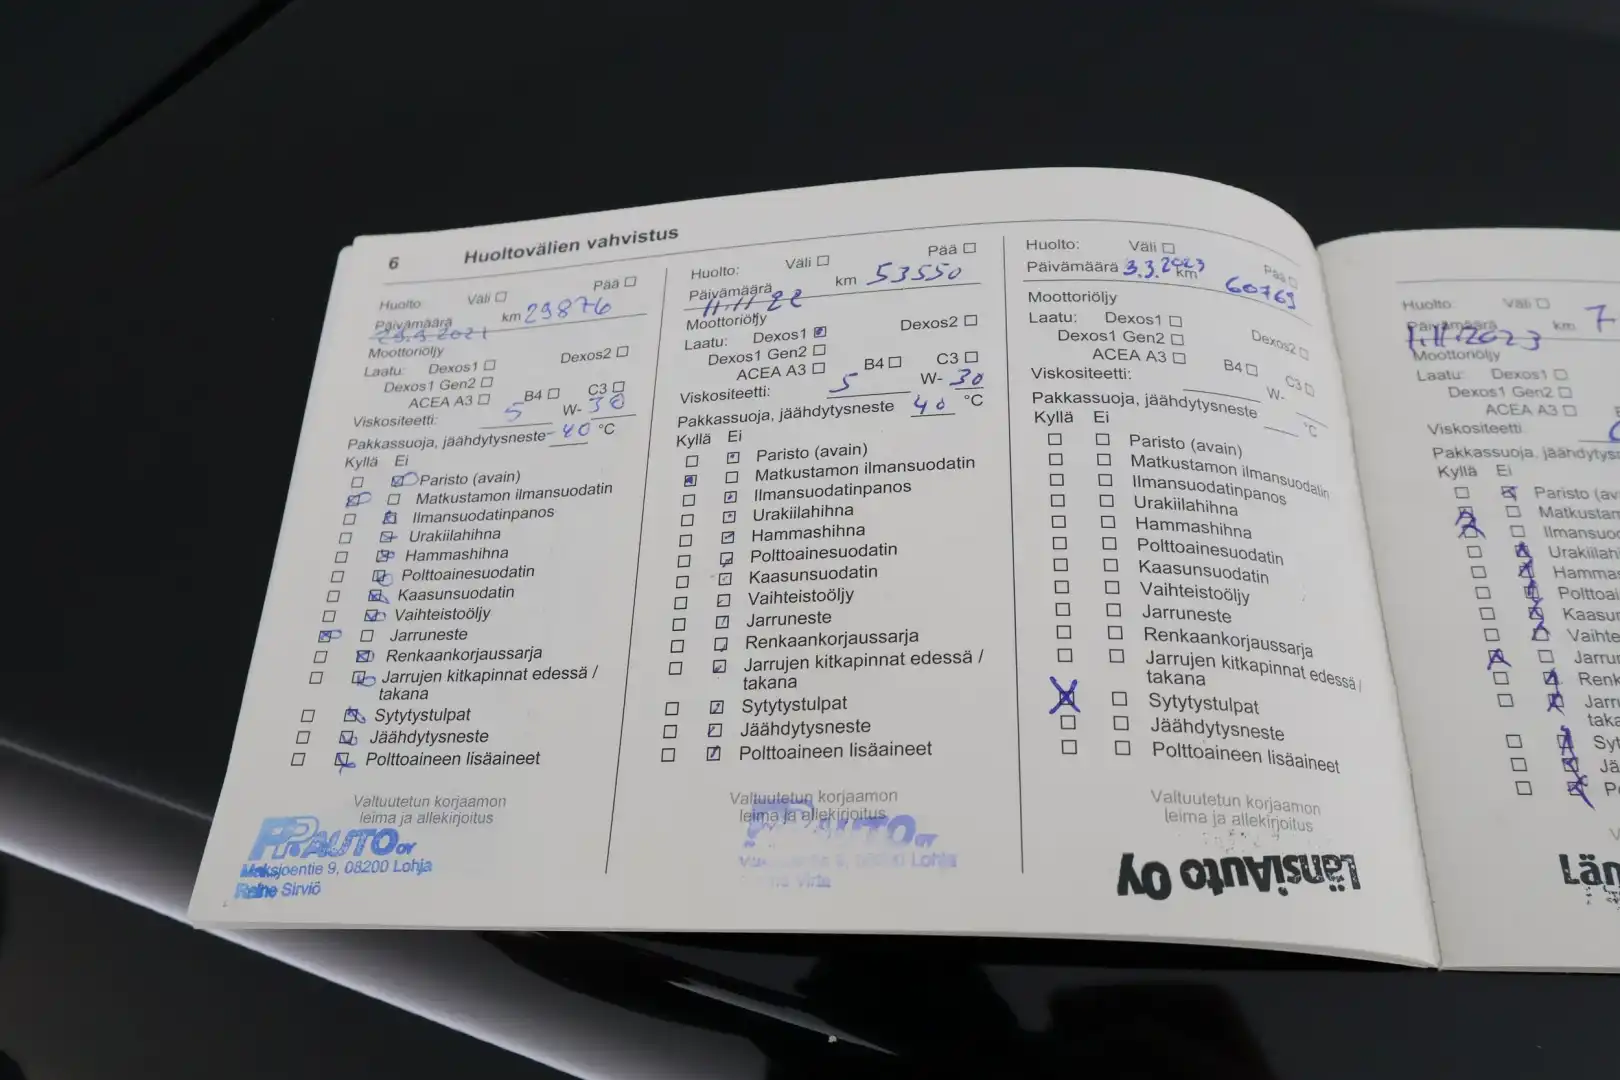 6 Huoltovälien vahvistus
Huolto: Väli Pää
Päivämäärä 29.9.2021 km 29876
Moottoriöljy
Laatu: Dexos1 Dexos2
Dexos1 Gen2
ACEA A3 B4 C3
Viskositeetti: 5 W- 30
Pakkassuoja, jäähdytysneste -40 °C
Kyllä Ei
Paristo (avain)
Matkustamon ilmansuodatin
Ilmansuodatinpanos
Urakiilahihna
Hammashihna
Polttoainesuodatin
Kaasunsuodatin
Vaihteistoöljy
Jarruneste
Renkaankorjaussarja
Jarrujen kitkapinnat edessä /
takana
Sytytystulpat
Jäähdytysneste
Polttoaineen lisäaineet
Valtuutetun korjaamon
leima ja allekirjoitus
PPAUTO OY
Maksjoentie 9, 08200 Lohja
Raine Sirviö
Huolto: Väli Pää
Päivämäärä 11.11.22 km 53550
Moottoriöljy
Laatu: Dexos1 Dexos2
Dexos1 Gen2
ACEA A3 B4 C3
Viskositeetti: 5 W- 30
Pakkassuoja, jäähdytysneste 40 °C
Kyllä Ei
Paristo (avain)
Matkustamon ilmansuodatin
Ilmansuodatinpanos
Urakiilahihna
Hammashihna
Polttoainesuodatin
Kaasunsuodatin
Vaihteistoöljy
Jarruneste
Renkaankorjaussarja
Jarrujen kitkapinnat edessä /
takana
Sytytystulpat
Jäähdytysneste
Polttoaineen lisäaineet
Valtuutetun korjaamon
leima ja allekirjoitus
AUTO OY
Lohja
Huolto: Väli Pää
Päivämäärä 3.3.2023 km 60769
Moottoriöljy
Laatu: Dexos1 Dexos2
Dexos1 Gen2
ACEA A3 B4 C3
Viskositeetti: W-
Pakkassuoja, jäähdytysneste °C
Kyllä Ei
Paristo (avain)
Matkustamon ilmansuodatin
Ilmansuodatinpanos
Urakiilahihna
Hammashihna
Polttoainesuodatin
Kaasunsuodatin
Vaihteistoöljy
Jarruneste
Renkaankorjaussarja
Jarrujen kitkapinnat edessä /
takana
Sytytystulpat
Jäähdytysneste
Polttoaineen lisäaineet
Valtuutetun korjaamon
leima ja allekirjoitus
LänsiAuto Oy
Huolto: Väli
Päivämäärä 1.11.2023 km 7
Moottoriöljy
Laatu: Dexos1
Dexos1 Gen2
ACEA A3
Viskositeetti
Pakkassuoja, jäähdytysn
Kyllä Ei
Paristo (av
Matkustam
Ilmansuod
Urakiilah
Hammas
Polttoai
Kaasun
Vaihte
Jarru
Renk
Jarru
taka
Syt
Jä
P
Län